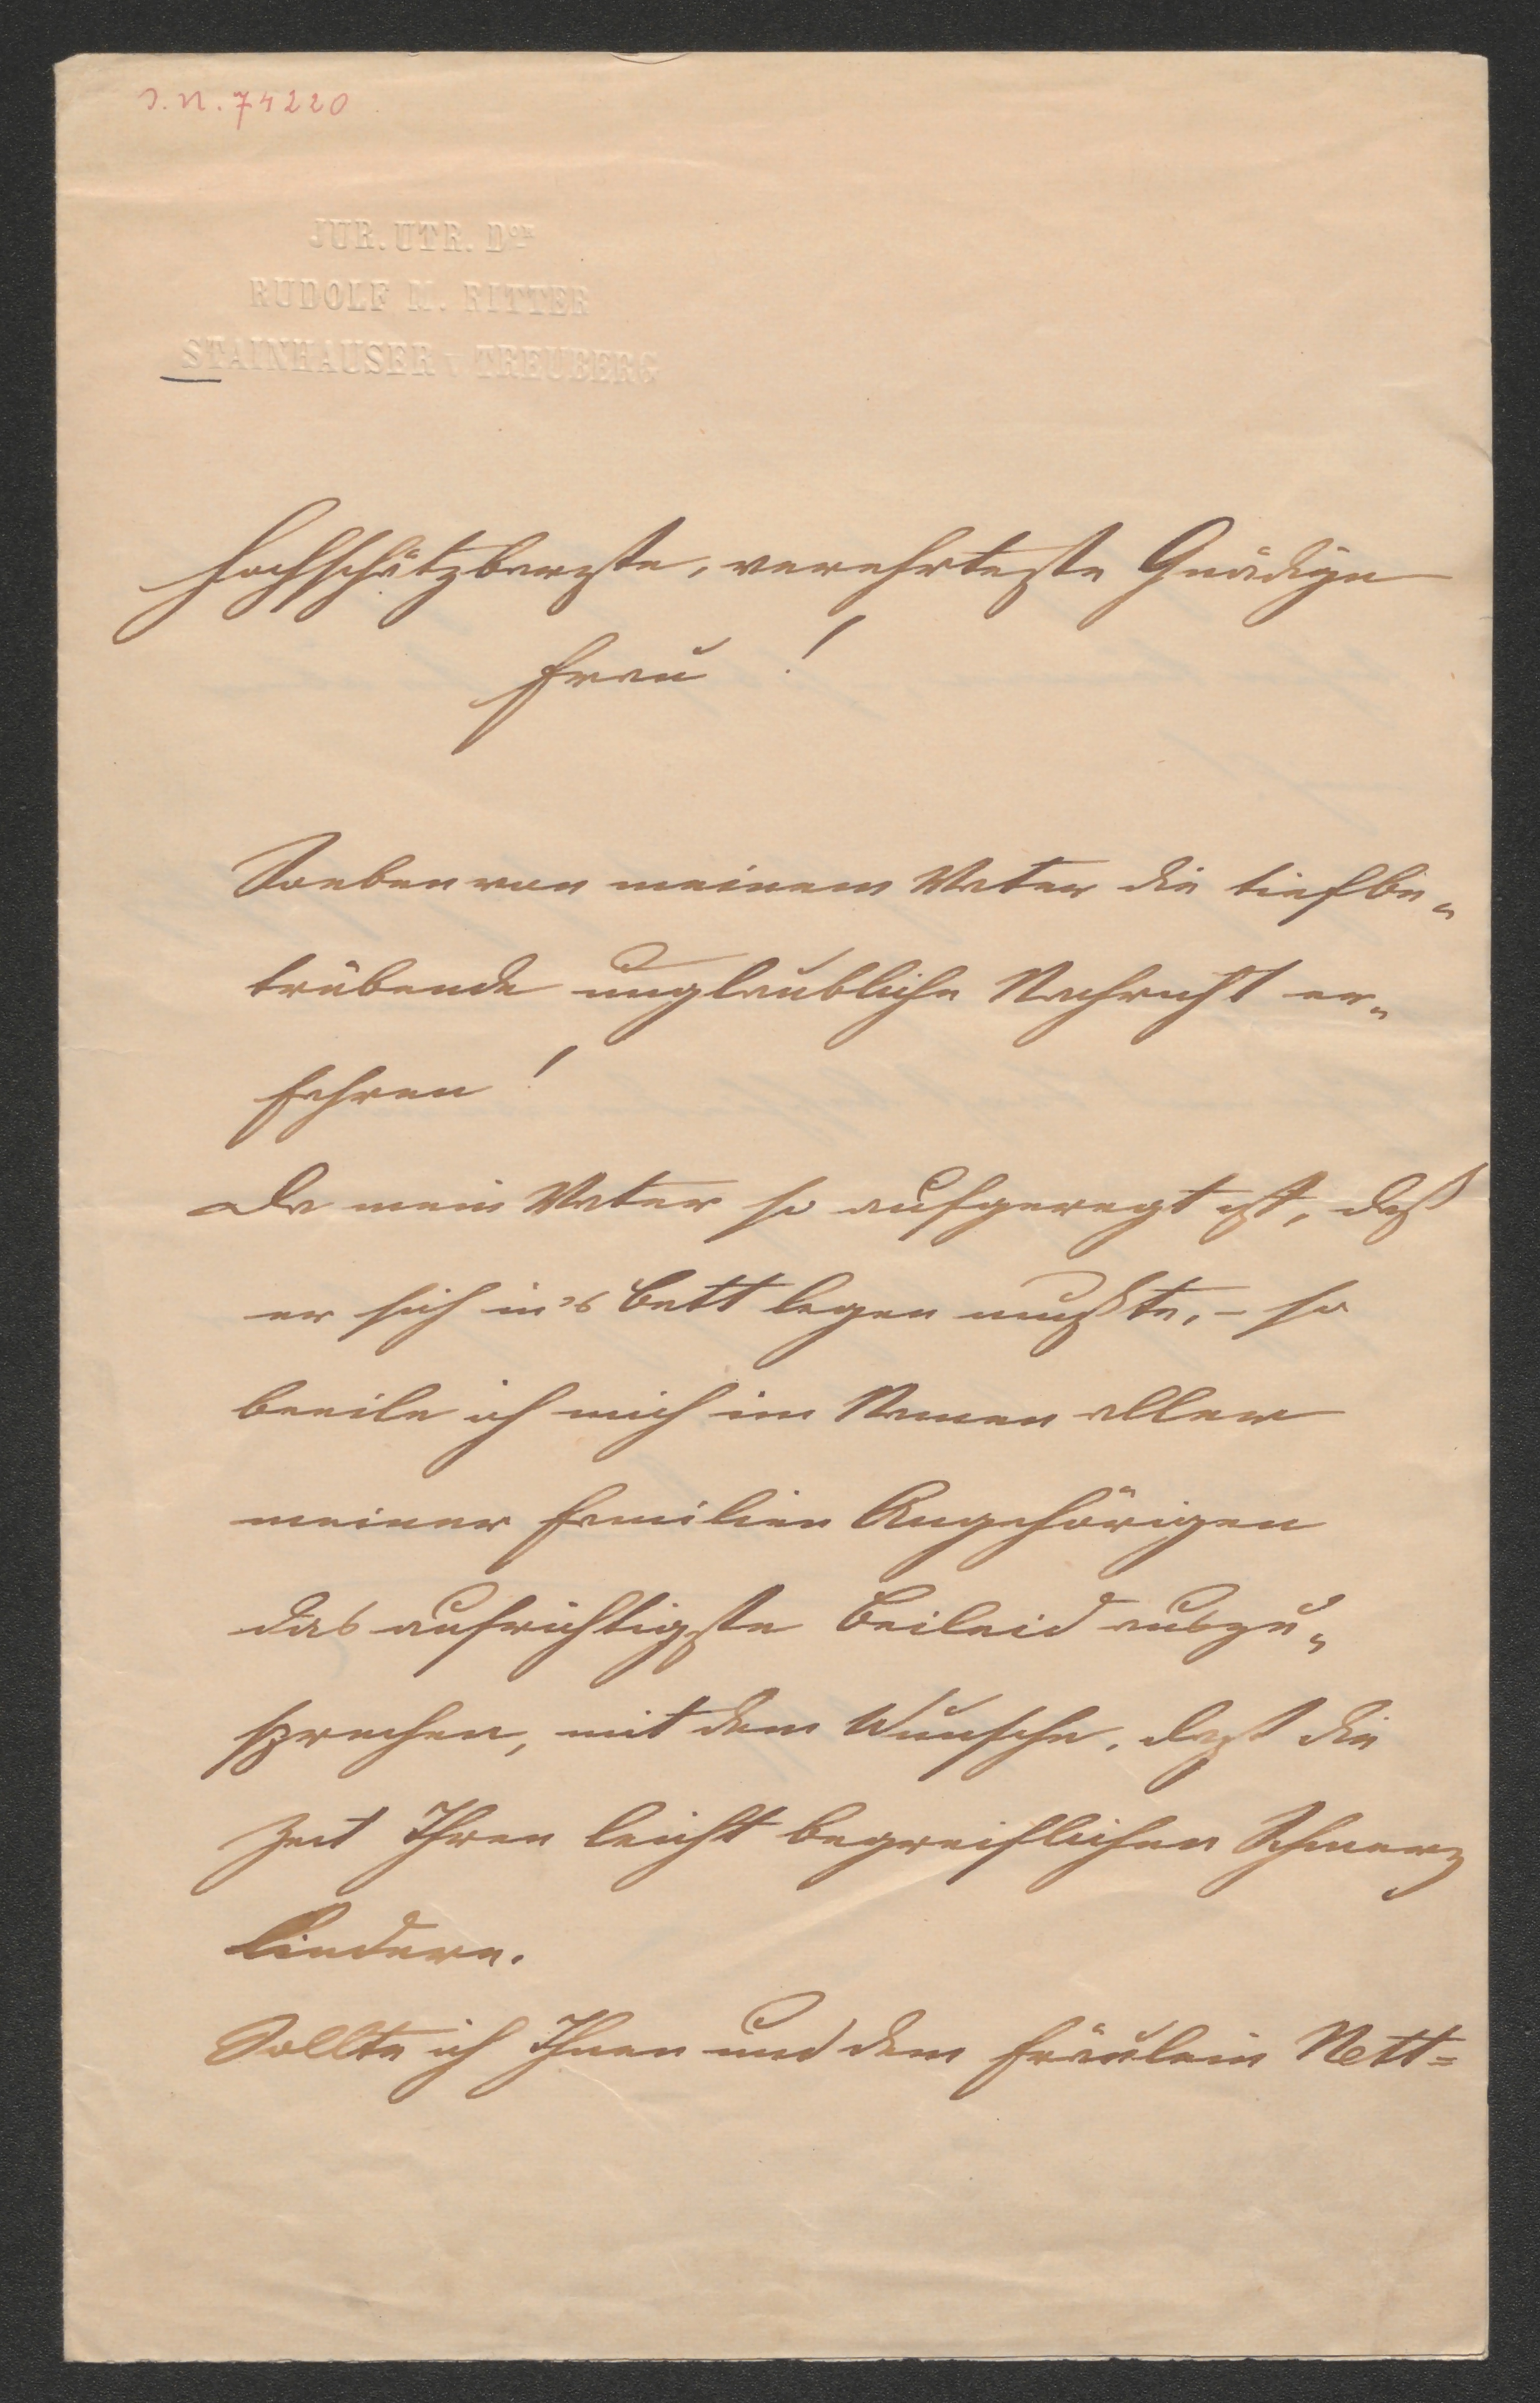 J.N. 74220
JUR. UTR. DOR
RUDOLF M. RITTER
STAINHAUSER v. TREUBERG
Hochschätzbarste, verehrteste Gnädige
Frau !
Soeben von meinem Vater die tiefbe„
trübende unglaubliche Nachricht er„
fahren !
Da mein Vater so aufgeregt ist, daß
er sich in's Bett legen mußte, – so
beeile ich mich im Namen aller
meiner Familien Angehörigen
das aufrichtigste Beileid auszu„
sprechen, mit dem Wunsche, daß die
Zeit Ihren leicht begreiflichen Schmerz
lindere.
Sollte ich Ihnen und dem Fräulein Nett=